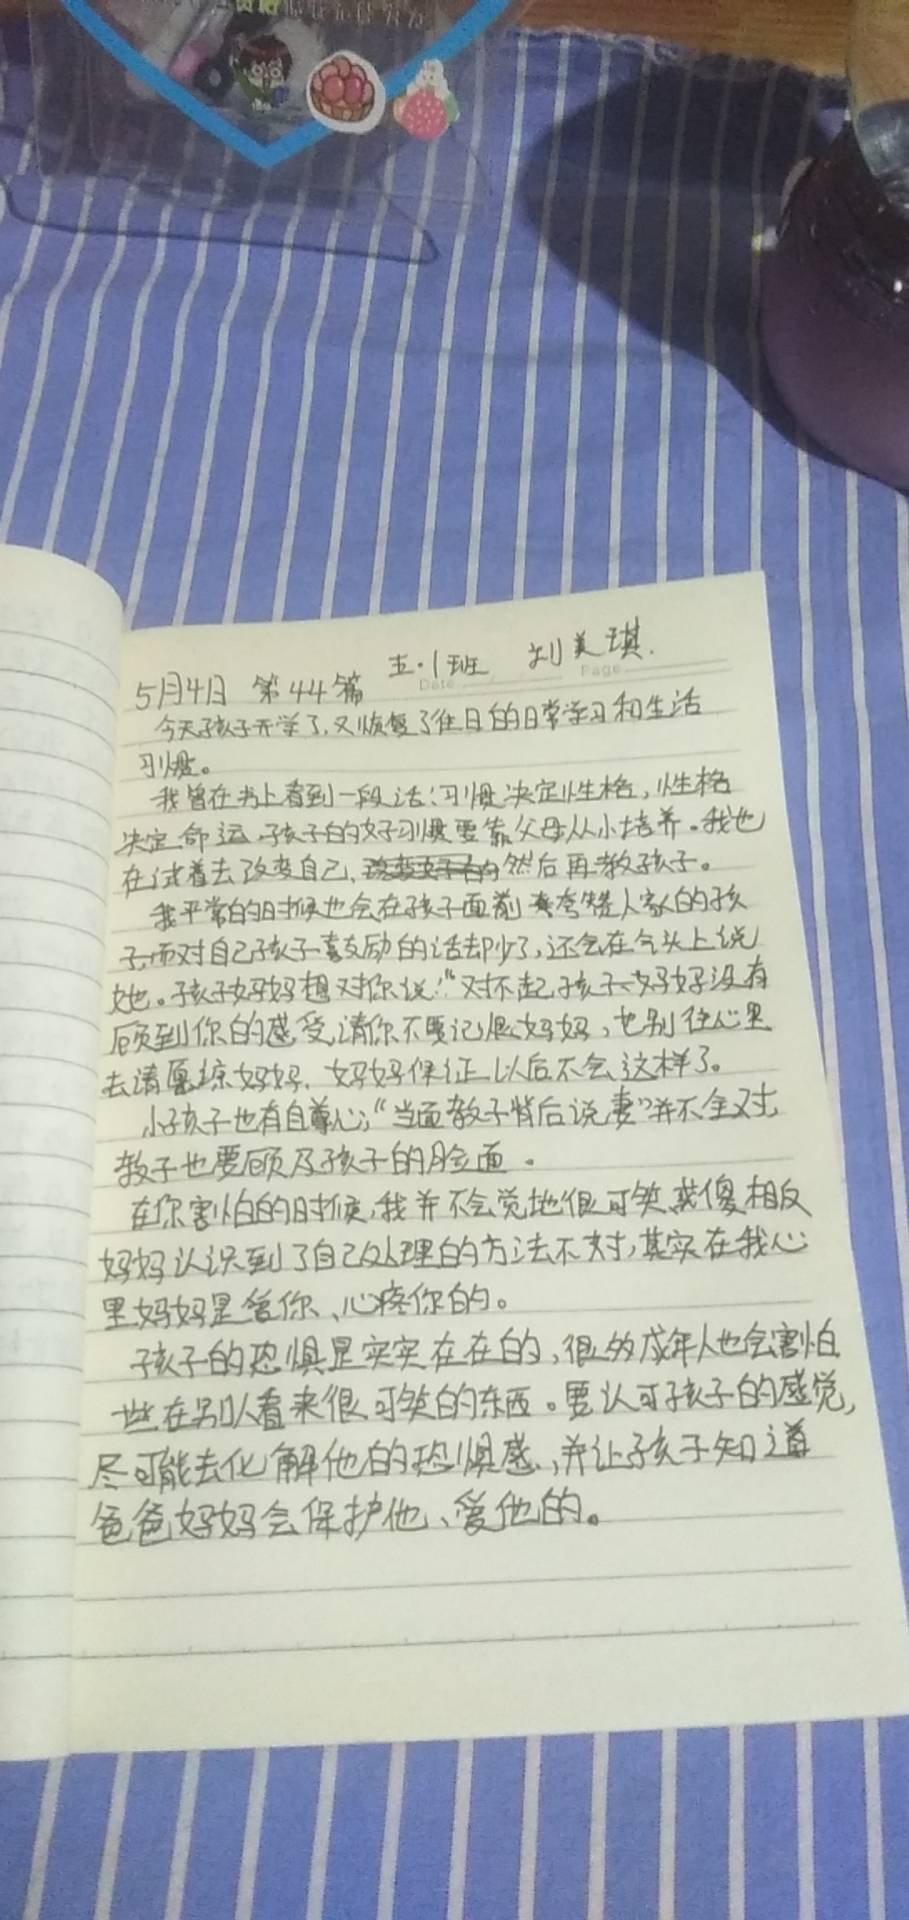 五·1班 刘美琪.
5月4日 第44篇
Date Page
今天孩子开学了,又恢复了往日的日常学习和生活
习惯。
我曾在书上看到一段话:习惯决定性格,性格
决定命运.孩子的好习惯要靠父母从小培养。我也
在试着去改变自己,然后再教孩子。
我平常的时候也会在孩子面前夸赞人家的孩
子,而对自己孩子鼓励的话却少了,还会在气头上说
她。孩子妈妈想对你说:“对不起,孩子妈妈没有
顾到你的感受,请你不要记恨妈妈,也别往心里
去请愿谅妈妈、妈妈保证以后不会这样了。
小孩子也有自尊心,“当面教子背后说妻”并不全对,
教子也要顾及孩子的脸面。
在你害怕的时候,我并不会觉地很可笑或傻相反
妈妈认识到了自己处理的方法不对,其实在我心
里妈妈是爱你、心疼你的。
孩子的恐惧是实实在在的,很多成年人也会害怕
一些在别人看来很可笑的东西。要认可孩子的感觉,
尽可能去化解他的恐惧感,并让孩子知道
爸爸妈妈会保护他、爱他的。